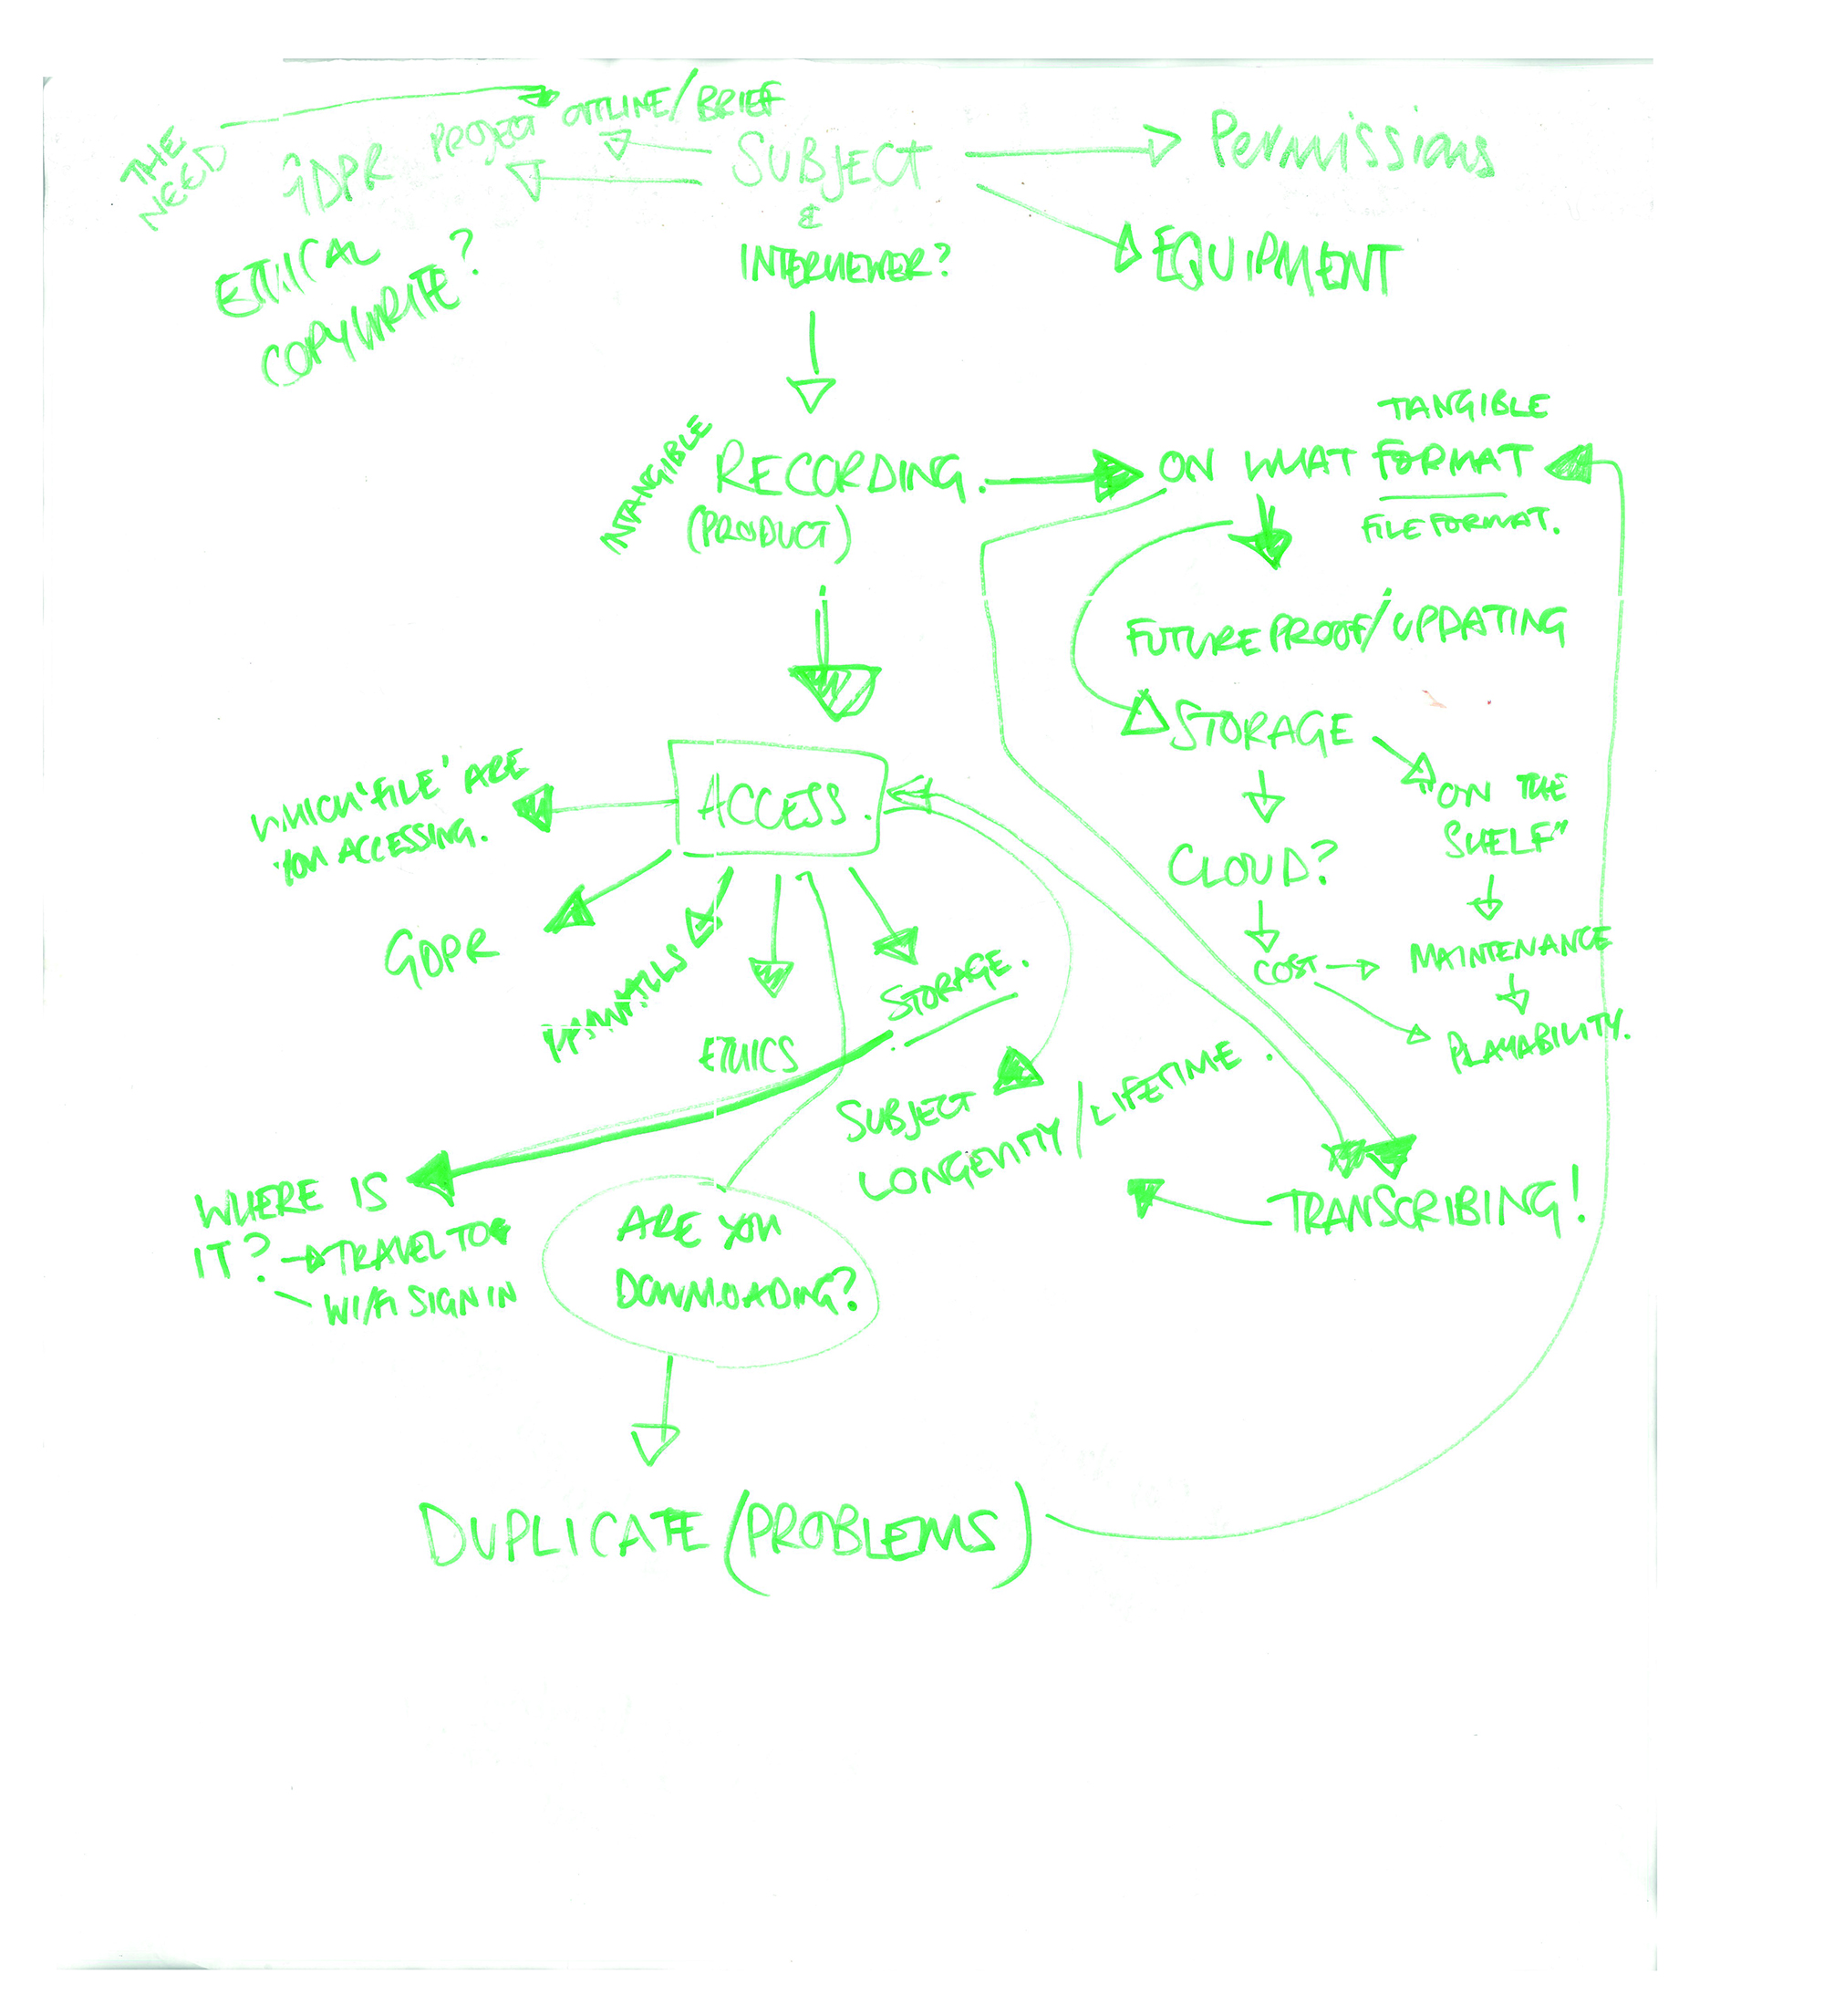 THE
NEED
PROJECT OUTLINE/BRIEF
GDPR
SUBJECT
&
INTERVIEWER?
Permissions
EQUIPMENT
ETHICAL
COPYWRITE?
INTANGIBLE
RECORDING.
(PRODUCT)
TANGIBLE
ON WHAT FORMAT
FILE FORMAT.
FUTURE PROOF/UPDATING
STORAGE
"ON THE
SHELF"
CLOUD?
COST
MAINTENANCE
PLAYABILITY.
ACCESS.
WHICH 'FILE' ARE
YOU ACCESSING.
GDPR
ETHICS
STORAGE.
SUBJECT
LONGEVITY/LIFETIME.
TRANSCRIBING!
WHERE IS
IT? TRAVEL TO
WIFI SIGN IN
ARE YOU
DOWNLOADING?
DUPLICATE (PROBLEMS)